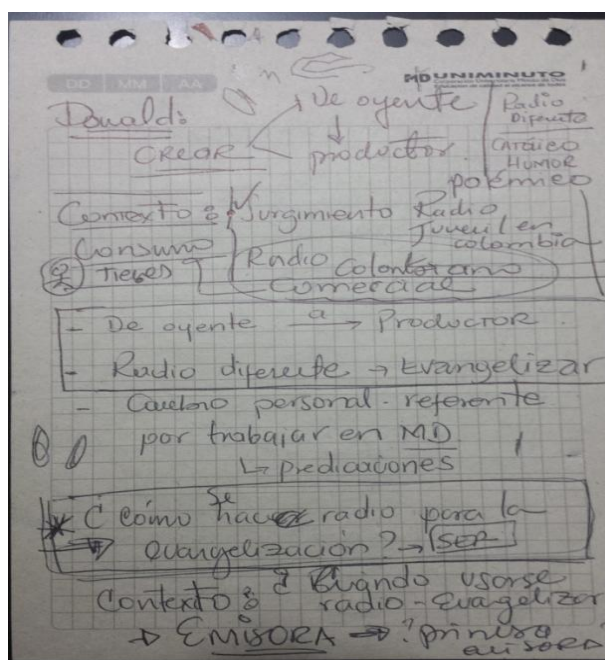 DD MM AA
UNIMINUTO
Donald:
CREAR
De oyente
productor.
Radio
Diferente
CATÓLICO
HUMOR
polémico
Contexto:
Consumo
Surgimiento Radio
Juvenil en
colombia
Radio
Comercial
- De oyente a → Productor.
- Radio diferente → Evangelizar
- personal - referente
por trabajar en MD
↳ predicaciones
* ¿Cómo se hace radio para la
→ evangelización? → SER
Contexto: ¿Cuándo usarse
radio - Evangelizar
→ EMISORA → ? primera
emisora